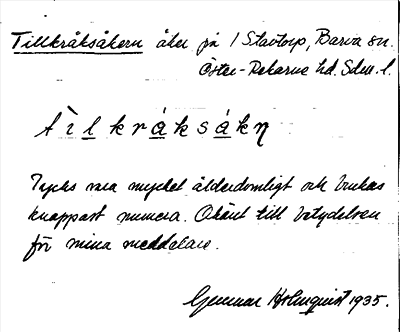 Tillkråksåkern åker på 1 Stavtorp, Barva sn.
Öster-Rekarne hd. Sdm. l.
tìlkráksákn
Tycks vara mycket ålderdomligt och brukas
knappast numera. Okänt till betydelsen
för mina meddelare.
Gunnar Holmquist 1935.